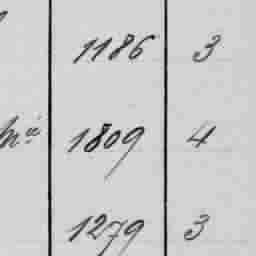 1186 3
1809 4
1279 3